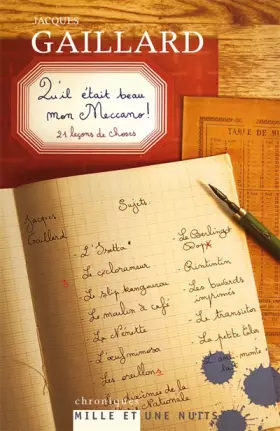 JACQUES
GAILLARD
Qu'il était beau
mon Meccano!
21 leçons de choses
TABLE DE
Sujets:
Jacques
Gaillard
- L'Isetta
- Le cyclorameur
- Le slip kangourou
- Le moulin à café
- La Nénette
- L'œuf mimosa
- Les oreillons
- Le Berlingot
Dop
- Rintintin
- Les buvards
imprimés
- Le transistor
- La petite laine
Nationale
chroniques
MILLE ET UNE NUITS